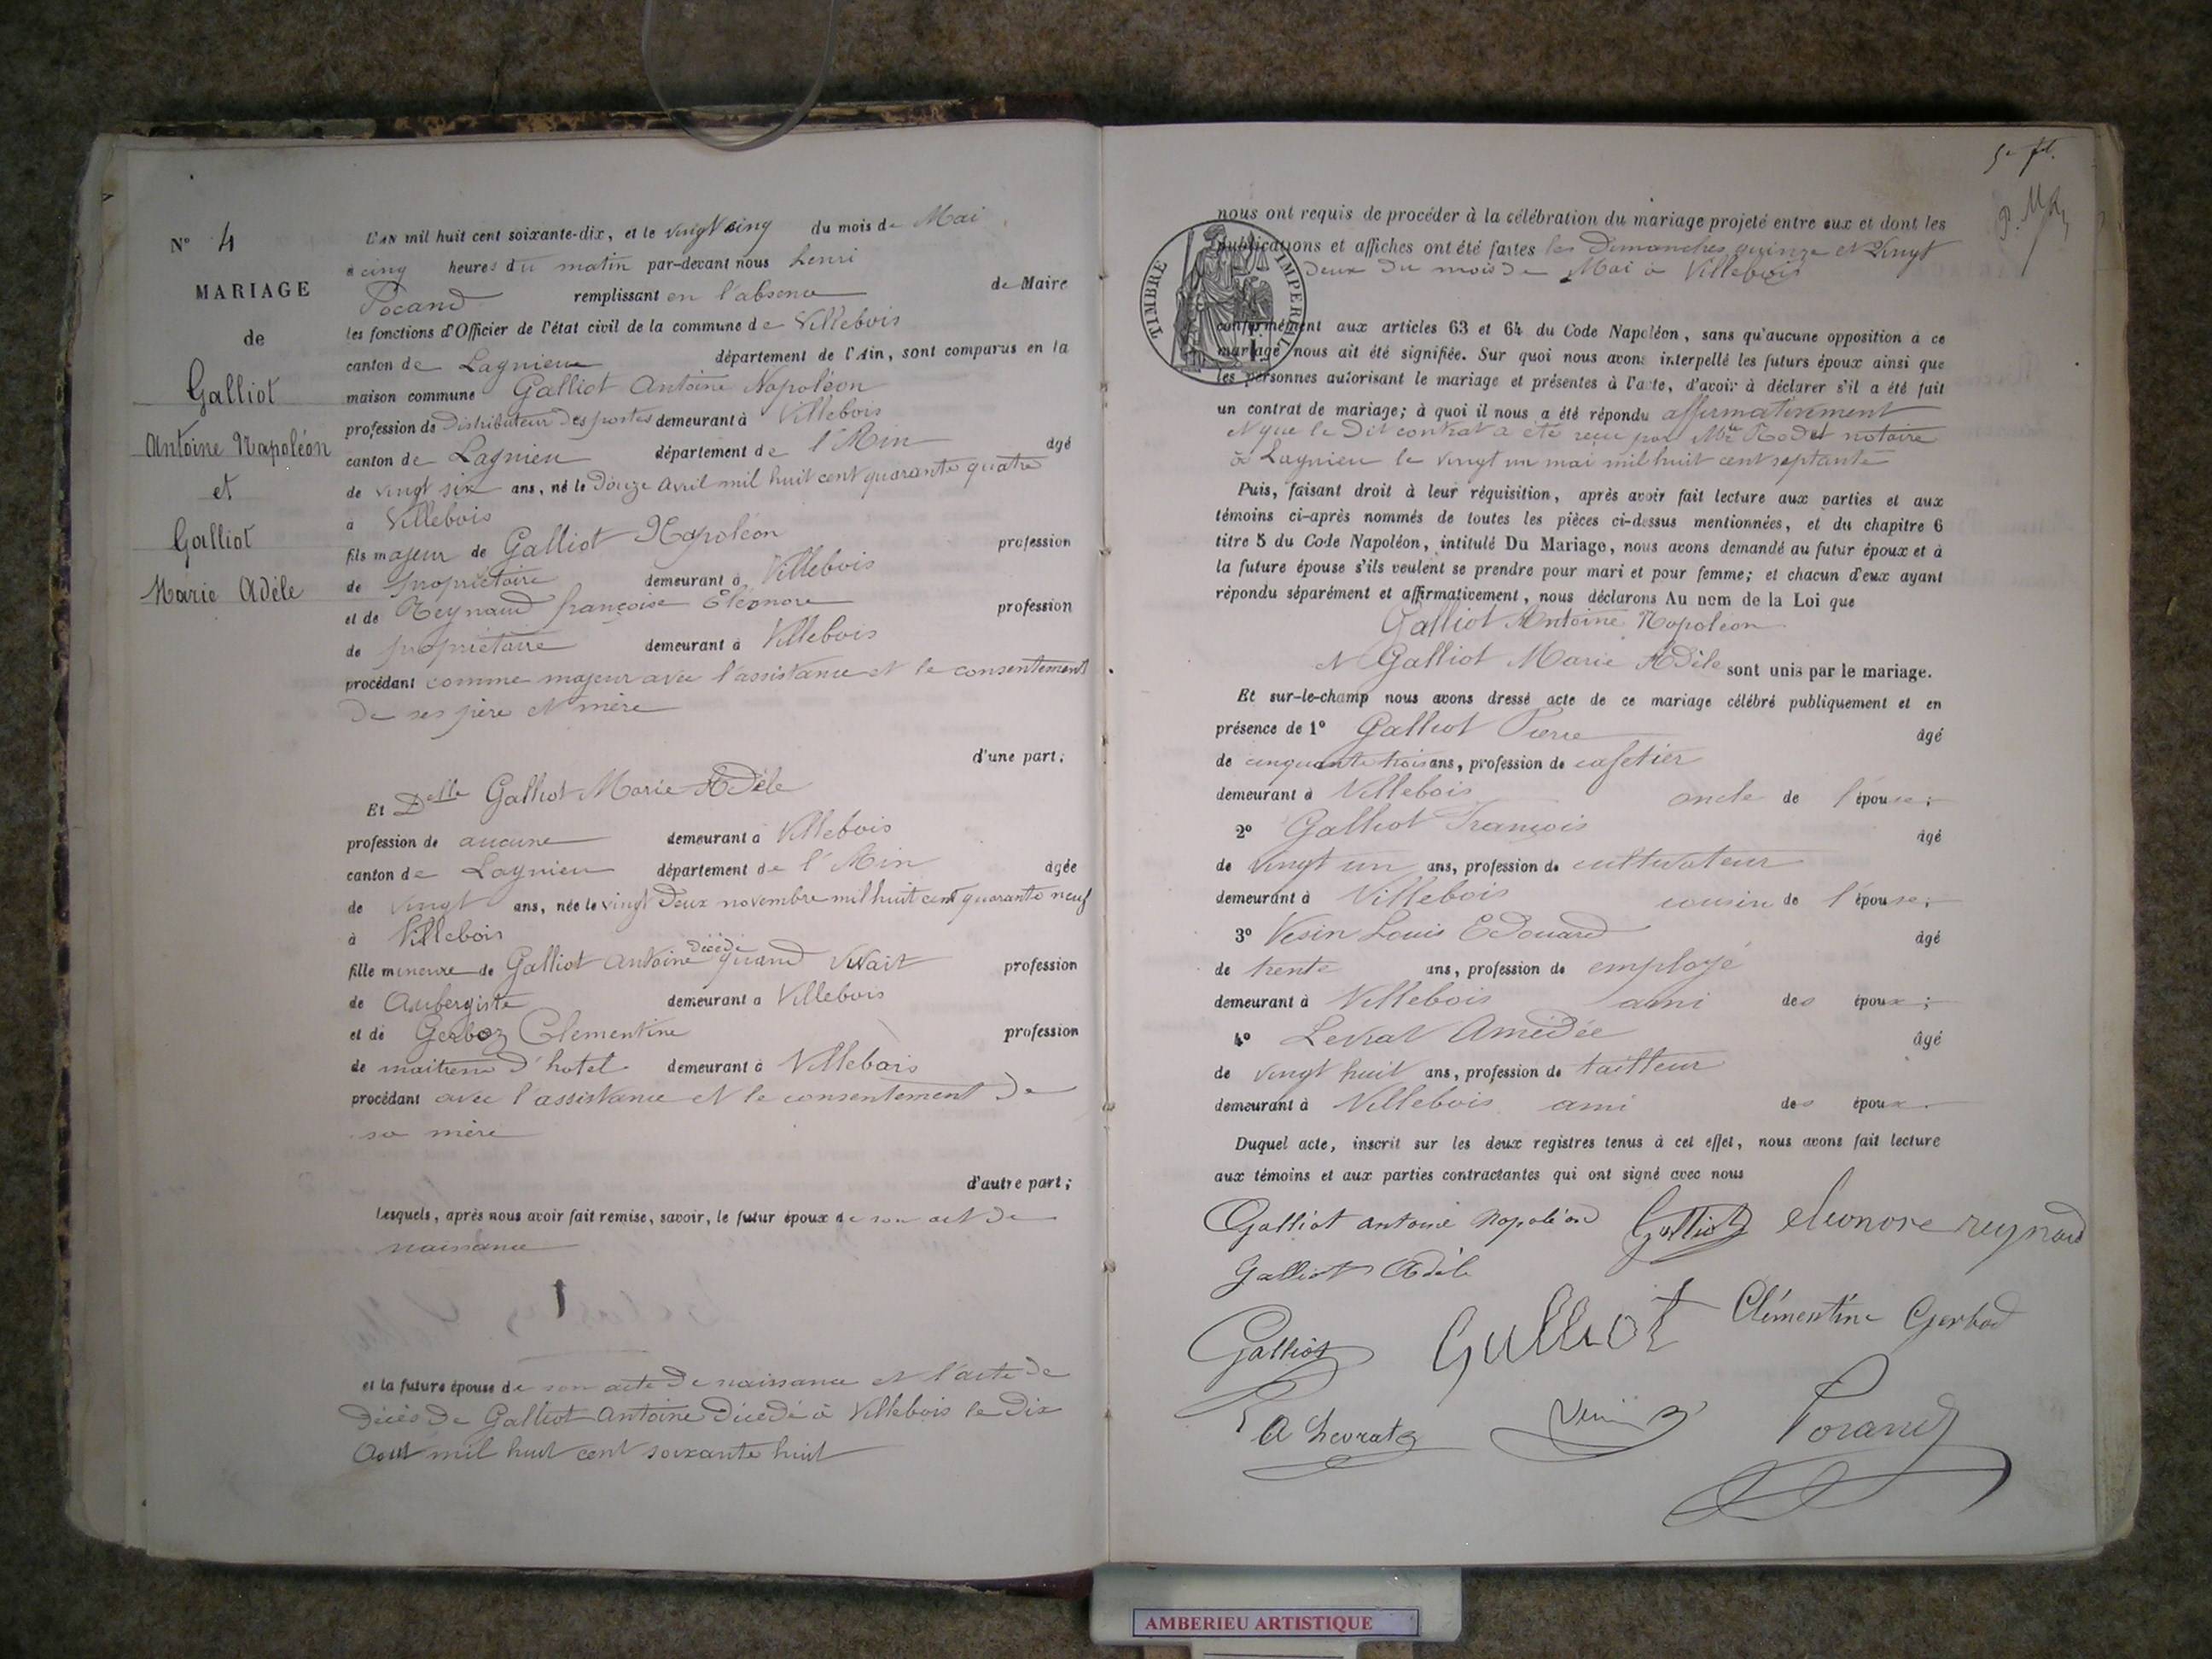 N° 4
MARIAGE
de
Galliot
Antoine Napoléon
et
Galliot
Marie Adèle
L'AN mil huit cent soixante-dix, et le vingt cinq du mois de Mai
à cinq heures du matin par-devant nous henri
Pocand remplissant en l'absence de Maire
les fonctions d'Officier de l'état civil de la commune de Villebois
canton de Lagnieu département de l'Ain, sont comparus en la
maison commune Galliot Antoine Napoléon
profession de Distributeur des postes demeurant à Villebois
canton de Lagnieu département de l'Ain âgé
de vingt six ans, né le Douze Avril mil huit cent quarante quatre
à Villebois
fils majeur de Galliot Napoléon profession
de propriétaire demeurant à Villebois
et de Reynaud françoise Eléonore profession
de propriétaire demeurant à Villebois
procédant comme majeur avec l'assistance et le consentement
de ses père et mère
d'une part;
Et Delle Galliot Marie Adèle
profession de aucune demeurant à Villebois
canton de Lagnieu département de l'Ain âgée
de vingt ans, née le vingt Deux novembre mil huit cent quarante neuf
à Villebois
fille mineure de Galliot Antoine décédé quand vivait profession
de Aubergiste demeurant à Villebois
et de Gerboz Clementine profession
de maitresse d'hotel demeurant à Villebois
procédant avec l'assistance et le consentement de
sa mère
d'autre part;
Lesquels, après nous avoir fait remise, savoir, le futur époux de son acte de
naissance
et la future épouse de son acte de naissance et l'acte de
décès de Galliot Antoine Décédé à Villebois le Dix
Aout mil huit cent soixante huit
5e ft.
TIMBRE IMPERIAL
nous ont requis de procéder à la célébration du mariage projeté entre eux et dont les
publications et affiches ont été faites les Dimanches quinze et Vingt
Deux du mois de Mai à Villebois
conformément aux articles 63 et 64 du Code Napoléon, sans qu'aucune opposition à ce
mariage nous ait été signifiée. Sur quoi nous avons interpellé les futurs époux ainsi que
les personnes autorisant le mariage et présentes à l'acte, d'avoir à déclarer s'il a été fait
un contrat de mariage; à quoi il nous a été répondu affirmativement
et que le Dit contrat a été reçu par Mtre Rodet notaire
à Lagnieu le vingt un mai mil huit cent septante
Puis, faisant droit à leur réquisition, après avoir fait lecture aux parties et aux
témoins ci-après nommés de toutes les pièces ci-dessus mentionnées, et du chapitre 6
titre 5 du Code Napoléon, intitulé Du Mariage, nous avons demandé au futur époux et à
la future épouse s'ils veulent se prendre pour mari et pour femme; et chacun d'eux ayant
répondu séparément et affirmativement, nous déclarons Au nom de la Loi que
Galliot Antoine Napoléon
et Galliot Marie Adèle sont unis par le mariage.
Et sur-le-champ nous avons dressé acte de ce mariage célébré publiquement et en
présence de 1° Galliot Pierre âgé
de cinquante trois ans, profession de cafetier
demeurant à Villebois oncle de l'épouse;
2° Galliot François âgé
de vingt un ans, profession de cultivateur
demeurant à Villebois cousin de l'épouse;
3° Vesin Louis Edouard âgé
de trente ans, profession de employé
demeurant à Villebois ami des époux;
4° Levrat Amédée âgé
de vingt huit ans, profession de tailleur
demeurant à Villebois ami des époux.
Duquel acte, inscrit sur les deux registres tenus à cet effet, nous avons fait lecture
aux témoins et aux parties contractantes qui ont signé avec nous
Galliot antoine Napoléon Galliot eleonore reynaud
Galliot Adèle
Galliot Galliot Clémentine Gerbod
A Levrat Pocand
AMBERIEU ARTISTIQUE